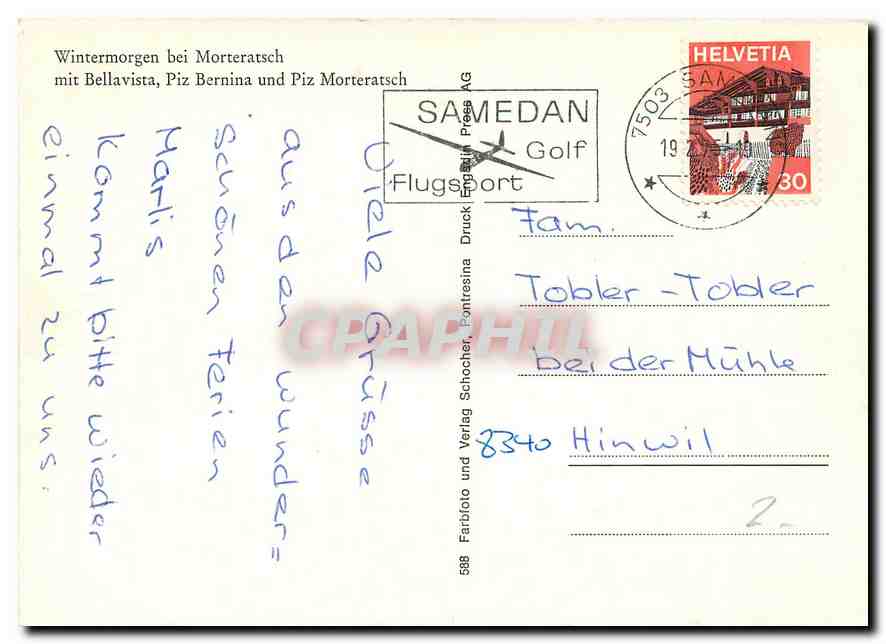 Wintermorgen bei Morteratsch
mit Bellavista, Piz Bernina und Piz Morteratsch
Viele Grüsse
aus den wunder=
schönen Ferien
Marlis
Kommt bitte wieder
einmal zu uns.
588 Farbfoto und Verlag Schocher, Pontresina Druck Engadin Press AG
SAMEDAN
Golf
Flugsport
7503 SAM
19.2.
HELVETIA
30
Fam.
Tobler-Tobler
bei der Mühle
8340 Hinwil
2.-
CPAPHIL